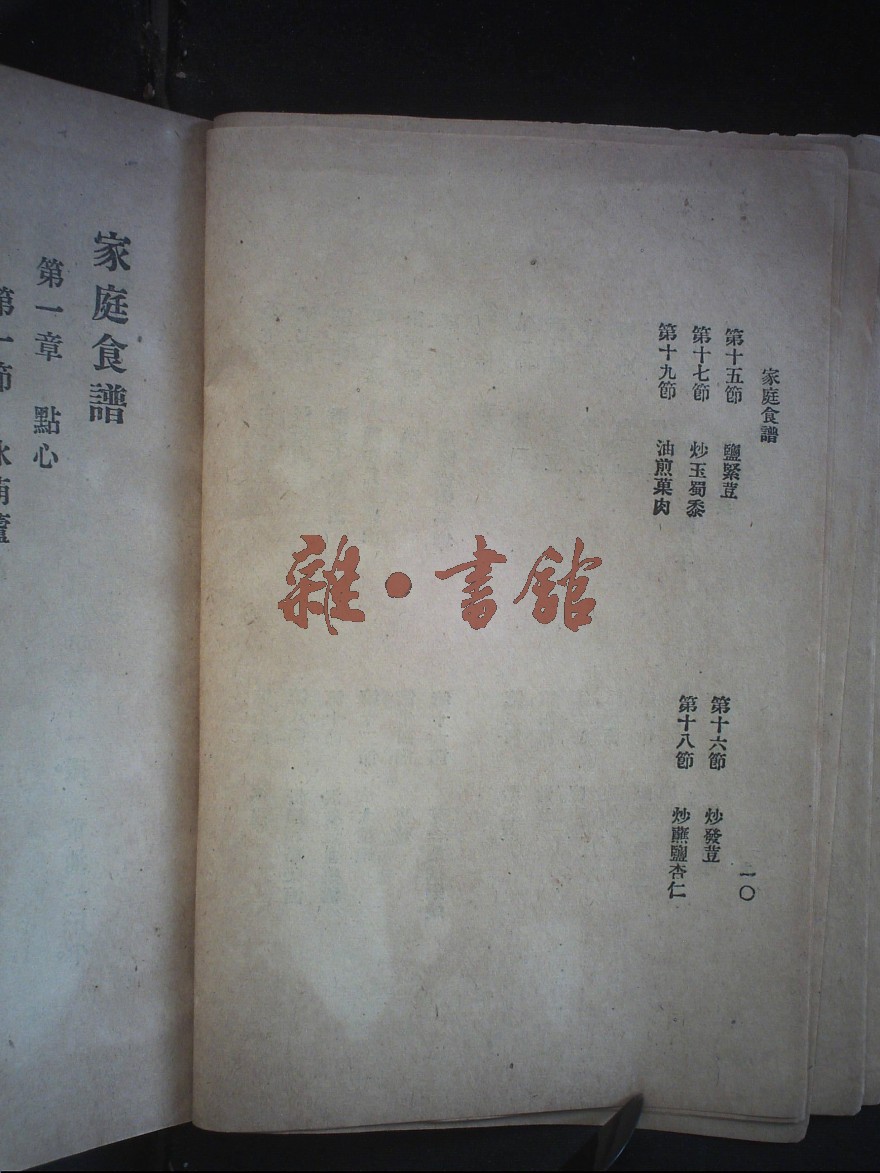 家庭食譜
一〇
第十五節 鹽緊荳
第十六節 炒發荳
第十七節 炒玉蜀黍
第十八節 炒蘸鹽杏仁
第十九節 油煎菓肉
家庭食譜
第一章 點心
第一節
雜•書館